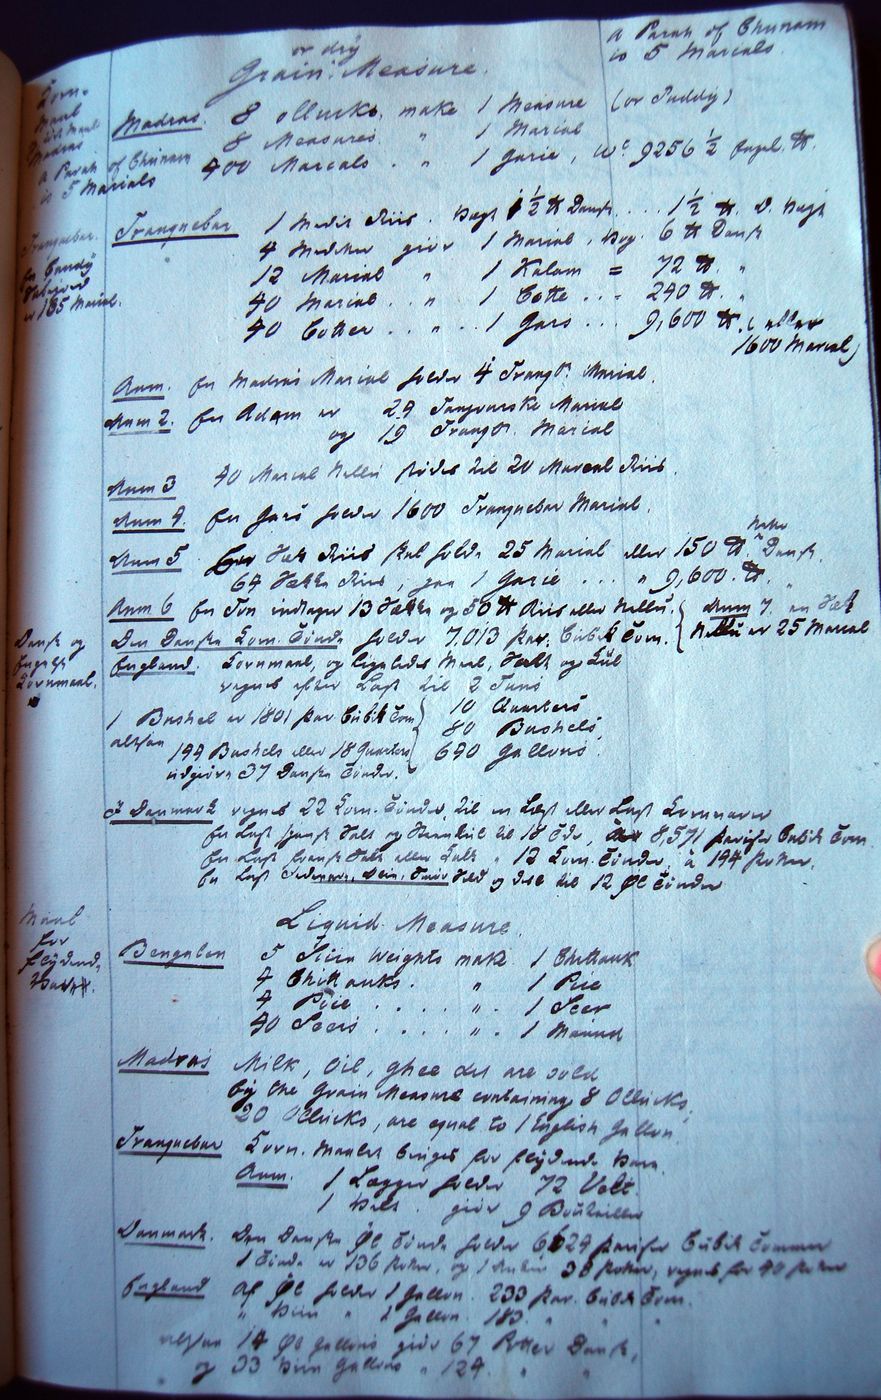 or dry
Grain Measure.
a Parah of Chunam
is 5 Marcals.
Korn-
Maal
Madras
a Parah of Chunam
is 5 Marcals
Madras. 8 ollucks make 1 Measure (or Puddy)
8 Measures " 1 Marcal
400 Marcals . " 1 Garce, Wt. 9256 1/2 Engl. ℔.
Tranquebar.
en Candy
er 165 Marcal.
Tranquebar 1 Medit Riis . Vægt 1 1/2 ℔ Dansk ... 1 1/2 ℔. D. Vægt
4 Meditter giør 1 Marcal, Væg. 6 ℔ Dansk
12 Marcal " 1 Kalam = 72 ℔. "
40 Marcal .. " 1 Cotte ... 240 ℔. "
40 Cotter .. " .. 1 Gars ... 9,600 ℔. (eller
1600 Marcal)
Anm. En Madras Marcal holder 4 Trangb. Marcal.
Anm 2. En Adam er 24 Tanjourske Marcal
og 19 Trangb. Marcal
Anm 3 40 Marcal Nellu til 20 Marcal Riis.
Anm 4. En Gars holder 1600 Tranquebar Marcal.
Anm 5 En Sæk Riis skal holde 25 Marcal eller 150 ℔ Netto Dansk.
64 Sække Riis, paa 1 Garce ... " 9,600. ℔. "
Anm 6 En Ton indtager 13 Sække og 50 ℔ Riis eller Nellu. { Anm 7. en Sæk
Nellu er 25 Marcal
Dansk og
Engelsk
Kornmaal.
Den Danske Korn Tønde holder 7,013 par. Cubik Tom.
England. Kornmaal, og ligeledes Meel, Salt og Kul
regnes efter Last til 2 Tuns
1 Bushel er 1801 par Cubik Tom } 10 Quarters
altsaa 80 Bushels
144 Bushels eller 18 Quarters 640 Gallons.
udgiøre 37 Danske Tønder.
I Danmark regnes 22 Korn Tønder til en Læst eller Last Kornvarer
En Last spansk Salt og Steenkul til 18 Tdr, 8,571 pariser Cubik Tom.
En Last fransk Salt eller Kalk " 12 Korn Tønder, à 144 Potter.
En Last til 12 Øl Tønder
Maal
for
flydende
Liquid Measure.
Bengalen 5 Sicca Weights make 1 Chittauk
4 Chittauks. " 1 Pice
4 Pice .... ". 1 Seer
40 Seers .... ". 1 Maund
Madras Milk, Oil, Ghee &c are sold
by the Grain Measure containing 8 Ollucks;
20 Ollucks, are equal to 1 English Gallon.
Tranquebar Korn-Maalet bruges for flydende Vare.
Anm. 1 Legger holder 72 Velt.
1 Velt. giør 9 Bouteiller
Danmark. Den Danske Øl Tønde holder 6624 pariser Cubik Tommer
1 Tønde er 136 Potter, og 1 Anker 38 Potter, regnes for 40 Potter
England af Øl holder 1 Gallon. 233 par. Cubik Tom.
" Viin " 1 Gallon. 183. " " "
altsaa 14 Øl Gallons giør 67 Potter Dansk,
og 33 Viin Gallons " 124. " "